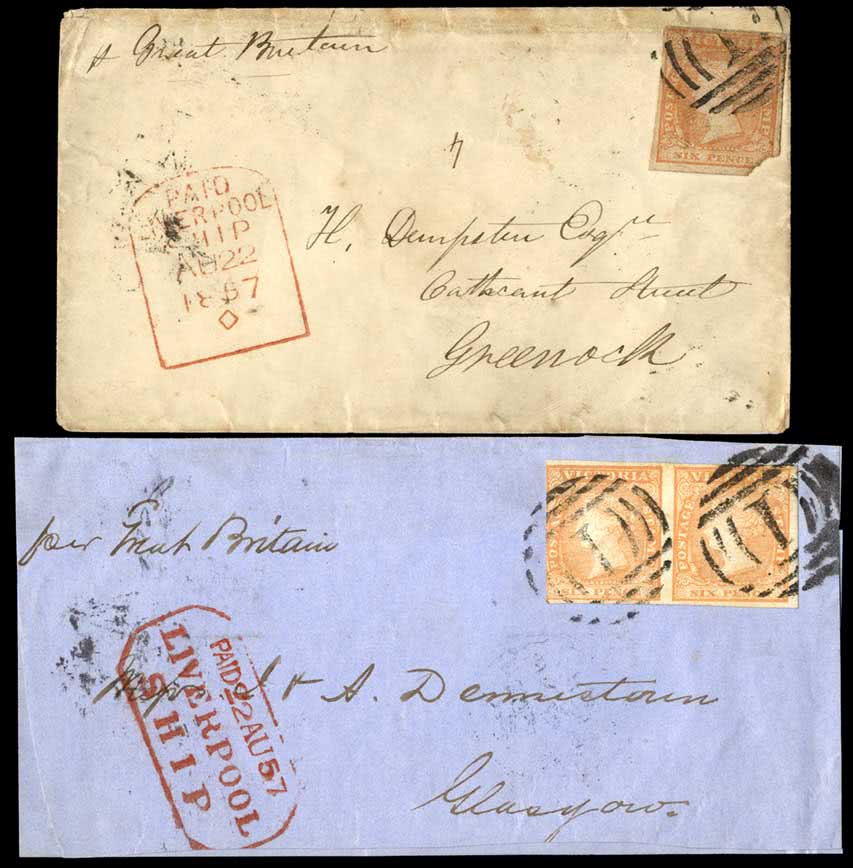 p Great Britain
POSTAGE
SIX PENCE
4
PAID
LIVERPOOL
SHIP
AU22
1857
H. Dempster Esqre
Cathcart Street
Greenock
per Great Britain
VICTORIA
POSTAGE
SIX PENCE
1
POSTAGE
SIX PENCE
1
PAID 22AU57
LIVERPOOL
SHIP
Messrs J & A. Dennistown
Glasgow.